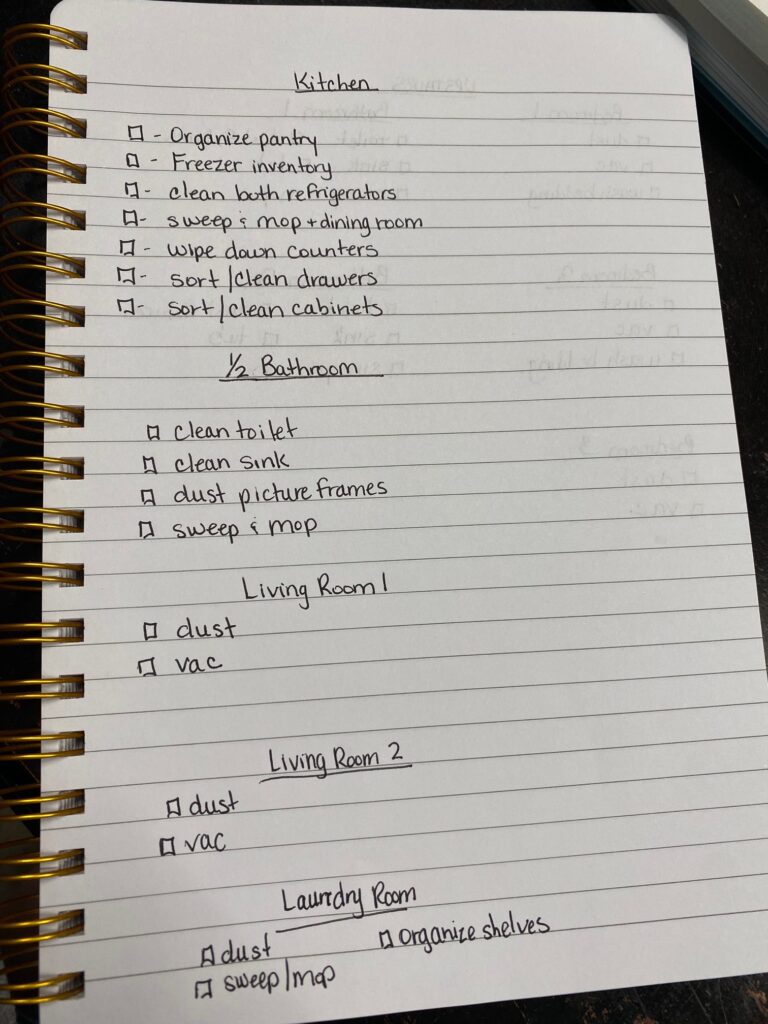 Kitchen
☐ - Organize pantry
☐ - Freezer inventory
☐ - clean both refrigerators
☐ - sweep & mop + dining room
☐ - wipe down counters
☐ - sort/clean drawers
☐ - sort/clean cabinets
1/2 Bathroom
☐ clean toilet
☐ clean sink
☐ dust picture frames
☐ sweep & mop
Living Room 1
☐ dust
☐ vac
Living Room 2
☐ dust
☐ vac
Laundry Room
☐ dust ☐ organize shelves
☐ sweep/mop